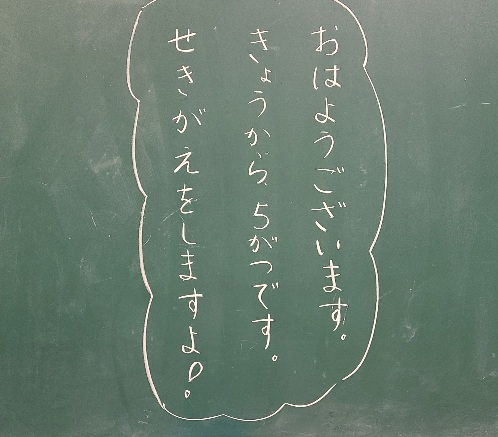 おはようございます。
きょうから、5がつです。
せきがえをしますよ!